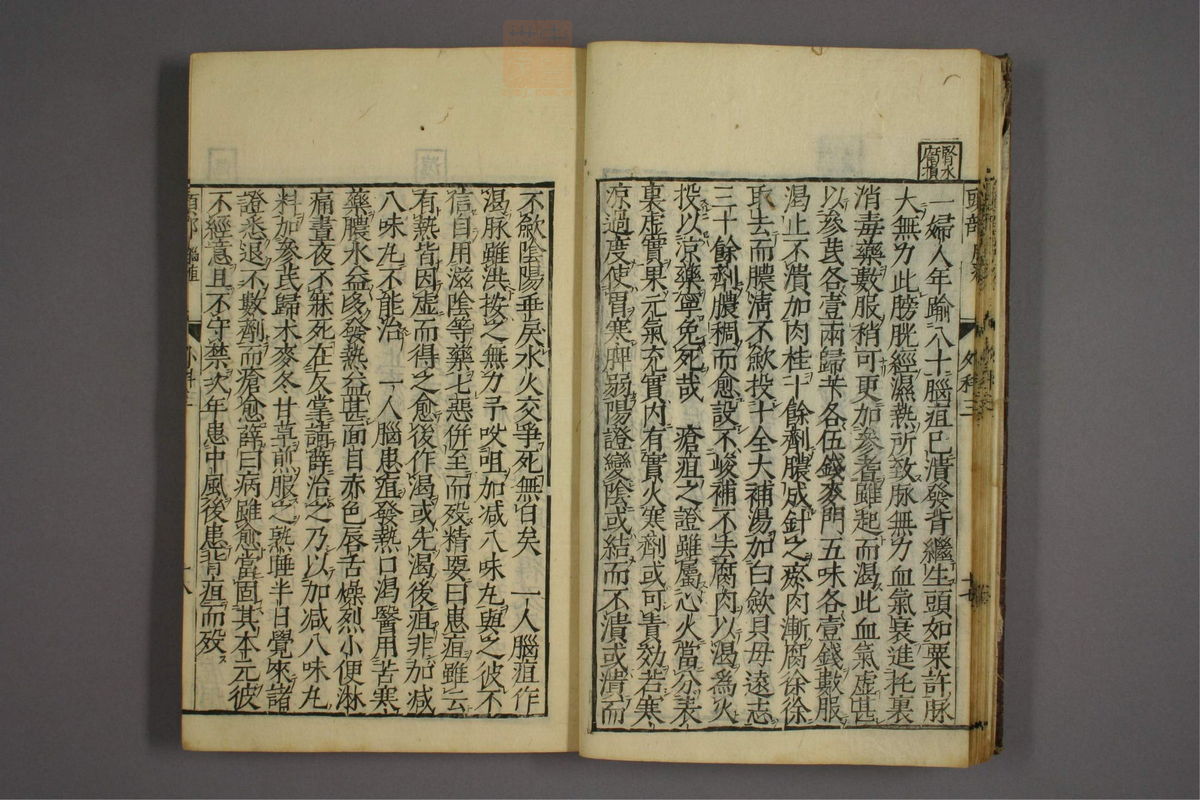 腎水
一婦人年踰八十腦疽已潰發背繼生頭如粟許脉
大無力此膀胱經濕熱所致脉無力血氣衰進托裏
消毒藥數服稍可更加參耆雖起而渴此血氣虛甚
以參芪各壹兩歸芐各伍錢麥門五味各壹錢數服
渴止不潰加肉桂十餘劑膿成針之瘀肉漸腐徐徐
取去而膿清不斂投十全大補湯加白斂貝母遠志
三十餘劑膿稠而愈設不峻補不去腐肉以渴為火
投以凉藥寧免死哉 瘡疽之證雖屬心火當分表
裏虛實果元氣充實內有實火寒劑或可責効若寒
凉過度使胃寒脾弱陽證變陰或結而不潰或潰而
頭部 外科
不斂陰陽乖戾水火交爭死無日矣 一人腦疽作
渴脉雖洪按之無力予㕮咀加减八味丸與之彼不
信自用滋陰等藥七惡併至而歿精要曰患疽雖云
有熱皆因虛而得之愈後作渴或先渴後疽非加减
八味丸不能治 一人腦患疽發熱口渴醫用苦寒
藥膿水益多發熱益甚面目赤色唇舌燥烈小便淋
痛晝夜不寐死在反掌請薛治之乃以加减八味丸
料加參芪歸朮麥冬甘草煎服之熟睡半日覺來諸
證悉退不數劑而瘡愈薛曰病雖愈當固其本元彼
不經意且不守禁次年患中風後患背疽而歿
頭部 腦疽 外科 十八